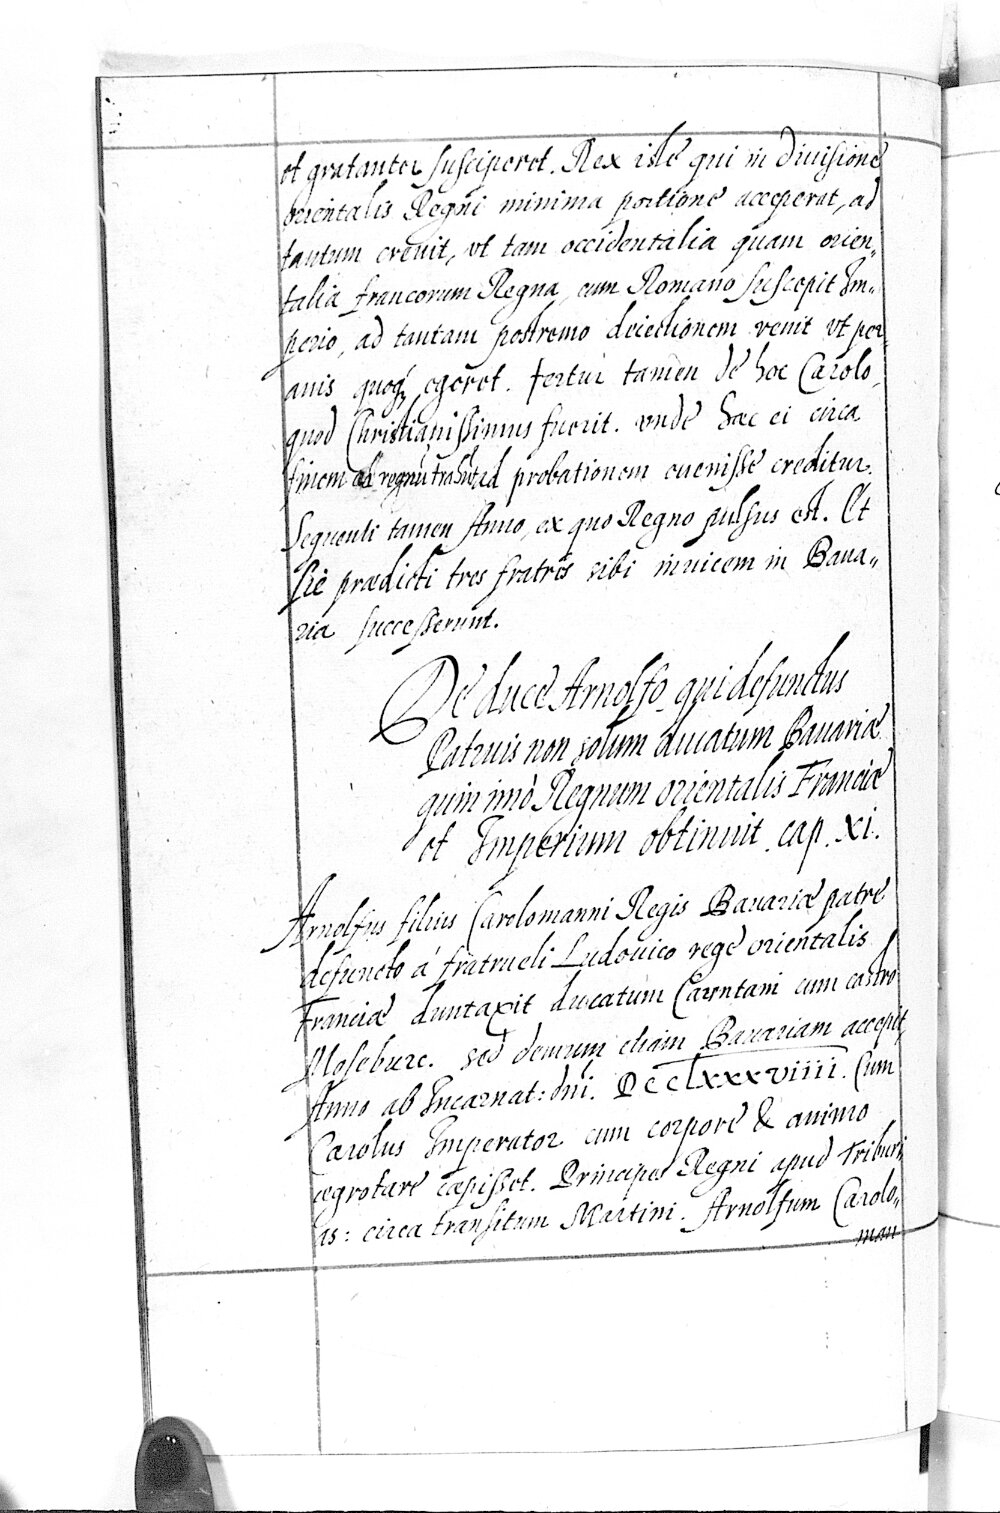 et gratanter susciperet. Rex iste qui in diuisione
orientalis Regni minima portione acceperat, ad
tantum creuit, vt tam occidentalia quam orien„
talia francorum Regna, cum Romano suscepit Im„
perio, ad tantam postremo deiectionem venit vt per„
anis quoq₃ egeret. Fertur tamen de hoc Carolo,
quod Christianissimus fuerit. vnde haec ei circa
finem regnũ ad probationem euenisse creditur.
Sequenti tamen Anno, ex quo Regno pulsus est. Et
sic prædicti tres fratres sibi inuicem in Baua„
ria successerunt.
De duce Arnolfo qui defunctus
Patruis non solum ducatum Bauariæ
quin imò Regnum orientalis Franciæ
et Imperium obtinuit. cap. xi.
Arnolfus filius Carolomanni Regis Bauariæ patre
defuncto á fratrueli Ludouico rege orientalis
Franciæ duntaxit ducatum Carentani cum castro
Moseburc. sed demum etiam Bauariam accepit,
Anno ab Incarnat: dnĩ. DCCLxxxviiii. Cum
Carolus Imperator cum corpore & animo
ægrotare cæpisset. Principes Regni apud Triburi
as: circa transitum Martini. Arnolfum Carolo„
man